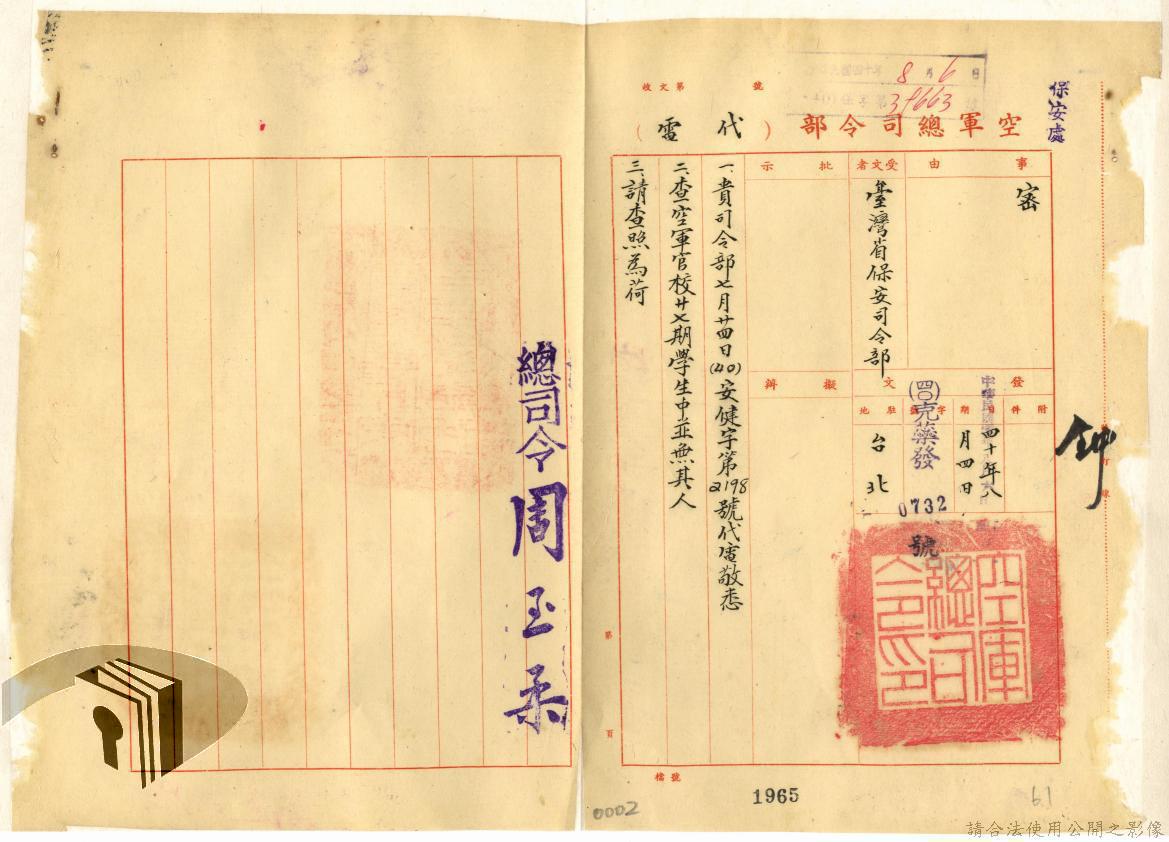 保安處
8月6日
39663
收文第 號
空軍總司令部(代電)
事由
密
受文者
臺灣省保安司令部
批示
擬辦
發文
附件
日期
四十年八月四日
字號
(四〇)克藥發
0732
號
駐地
台北
一、貴司令部七月廿四日(40)安健字第2198號代電敬悉
二、查空軍官校廿七期學生中並無其人
三、請查照為荷
總司令周至柔
空軍總司令印
第 頁
檔號
1965
0002
61
請合法使用公開之影像